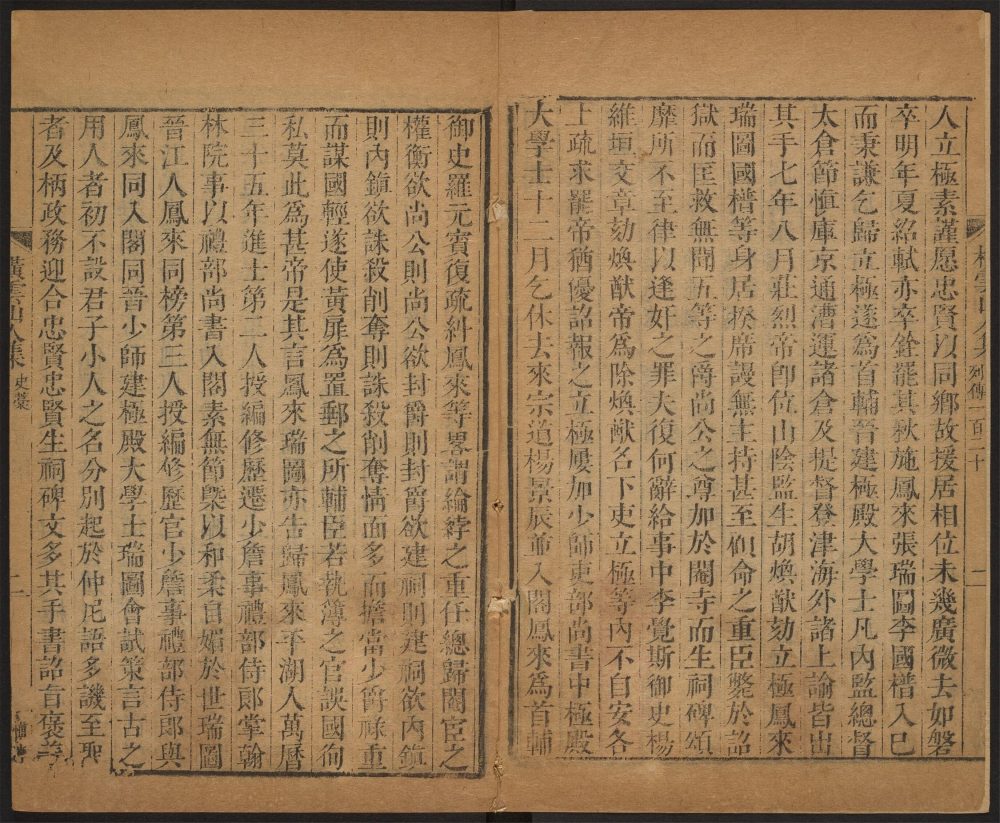 人立極素謹愿忠賢以同鄉故援居相位未幾廣微去如磐
卒明年夏紹軾亦卒銓罷其秋施鳳來張瑞圖李國㯿入已
而秉謙乞歸立極遂為首輔晉建極殿大學士凡內監總督
太倉節愼庫京通漕運諸倉及提督登津海外諸上諭皆出
其手七年八月莊烈帝卽位山陰監生胡煥猷劾立極鳳來
瑞圖國㯿等身居揆席謾無主持甚至顧命之重臣斃於詔
獄而匡救無聞五等之爵尚公之尊加於閹寺而生祠碑頌
靡所不至律以逢奸之罪夫復何辭給事中李覺斯御史楊
維垣交章劾煥猷帝為除煥猷名下吏立極等內不自安各
上疏求罷帝猶優詔報之立極屢加少師吏部尚書中極殿
大學士十一月乞休去來宗道楊景辰並入閣鳳來為首輔
列傳一百二十
二
御史羅元賓復疏糾鳳來等畧謂綸綍之重任總歸閹宦之
權衡欲尚公則尚公欲封爵則封爵欲建祠則建祠欲內鎮
則內鎮欲誅殺削奪則誅殺削奪情面多而擔當少爵祿重
而謀國輕遂使黃扉為置郵之所輔臣若執簿之官誤國徇
私莫此為甚帝是其言鳳來瑞圖亦告歸鳳來平湖人萬曆
三十五年進士第二人授編修歷遷少詹事禮部侍郎掌翰
林院事以禮部尚書入閣素無節槩以和柔自媚於世瑞圖
晉江人鳳來同榜第三人授編修歷官少詹事禮部侍郎與
鳳來同入閣同晉少師建極殿大學士瑞圖會試策言古之
用人者初不設君子小人之名分別起於仲尼語多譏至聖
者及柄政務迎合忠賢忠賢生祠碑文多其手書詔旨褒美
橫雲山人集 史藁